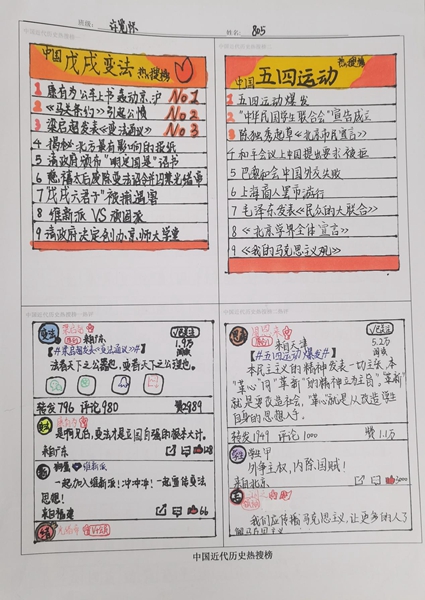 班级：
许宽怀
姓名：
805
中国戊戌变法热搜榜
1 康有为公车上书轰动京沪 No1
2 《马关条约》引起公愤 No2
3 梁启超发表《变法通议》 No3
4 揭秘北方最有影响的报纸
5 清政府颁布"明定国是"诏书
6 慈禧太后废除变法诏令并囚禁光绪帝
7 "戊戌六君子"被捕遇害
8 维新派 VS 顽固派
9 清政府决定创办京师大学堂
中国五四运动热搜榜
1 五四运动爆发
2 "中华民国学生联合会"宣告成立
3 陈独秀起草《北京市民宣言》
4 和平会议上中国提出要求被拒
5 巴黎和会中国外交失败
6 上海商人罢市游行
7 毛泽东发表《民众的大联合》
8 《北京学界全体宣言》
9 《我的马克思主义观》
梁启超
来自广东
1.9万
阅读
【#梁启超发表《变法通议》#】
法者天下之公器也，变者天下之公理也。
转发796 评论980 赞2989
是啊兄台，变法才是立国自强的根本大计。
来自广东
128
维新派
一起加入维新派！冲冲冲！一起宣传变法
思想！
来自福建
66
来自天津
5.2万
阅读
【#五四运动爆发#】
本民主主义的精神发表一切主张，本
"革心"同"革新"的精神立为主旨，"革新"
就是要改造社会，"革心"就是从改造学生
自身的思想入手。
转发1949 评论1000 赞1.1万
学生甲
外争主权，内除国贼！
来自北京
2000
我们应传播马克思主义，让更多的人了
中国近代历史热搜榜